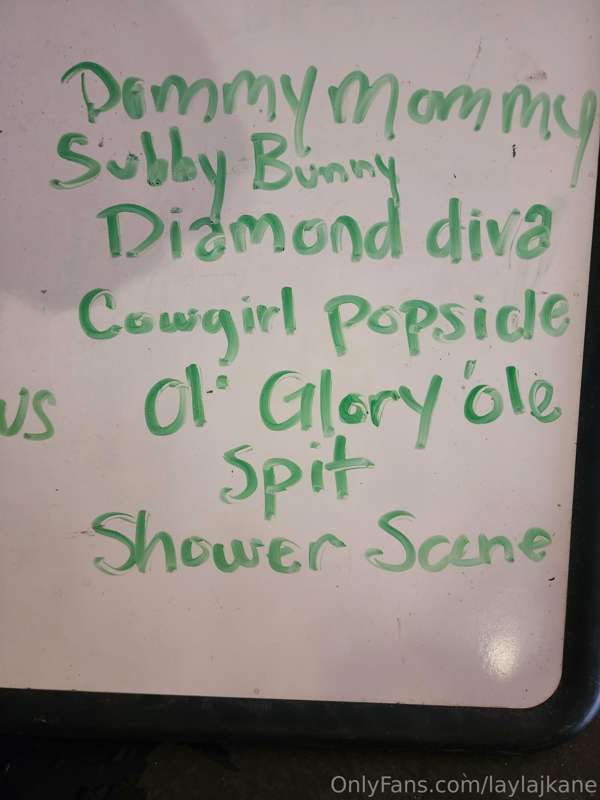 Dommy Mommy
Subby Bunny
Diamond diva
Cowgirl Popsicle
us Ol' Glory 'ole
Spit
Shower Scene
OnlyFans.com/laylajkane